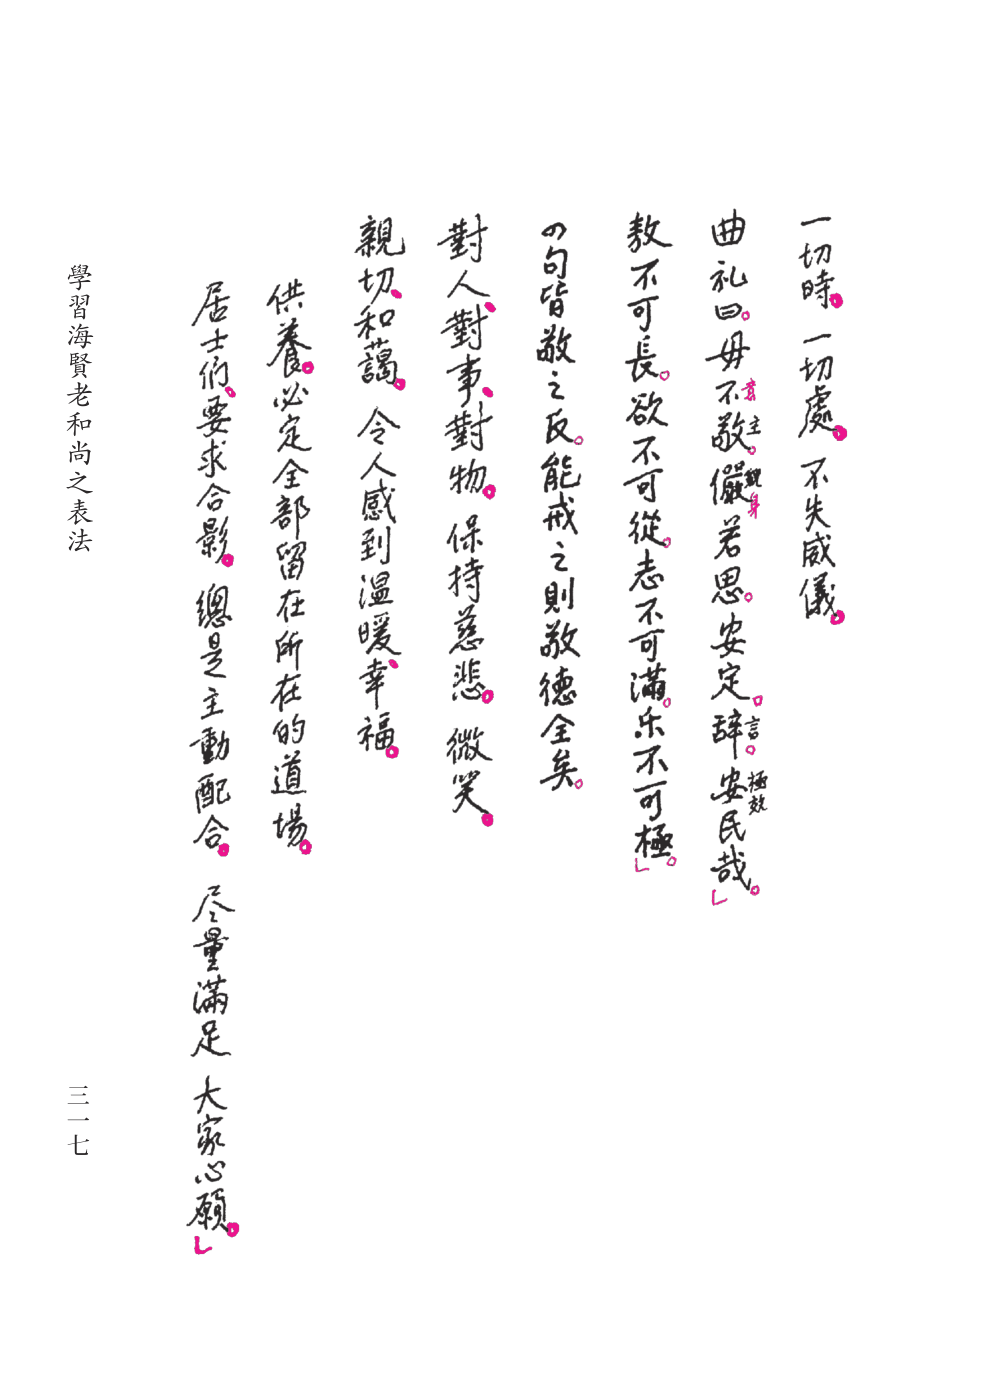 一切時。一切處。不失威儀。
曲礼曰。毋不敬。儼若思。安定。辞。安民哉。」
意 主 貌 身 言 極效
敖不可長。欲不可從。志不可滿。乐不可極。」
四句皆敬之反。能戒之則敬德全矣。
對人、對事、對物。保持慈悲。微笑。
親切、和藹。令人感到温暖、幸福。
供養。必定全部留在所在的道場。
居士們、要求合影。總是主動配合。尽量滿足大家心願。」
學習海賢老和尚之表法
三一七